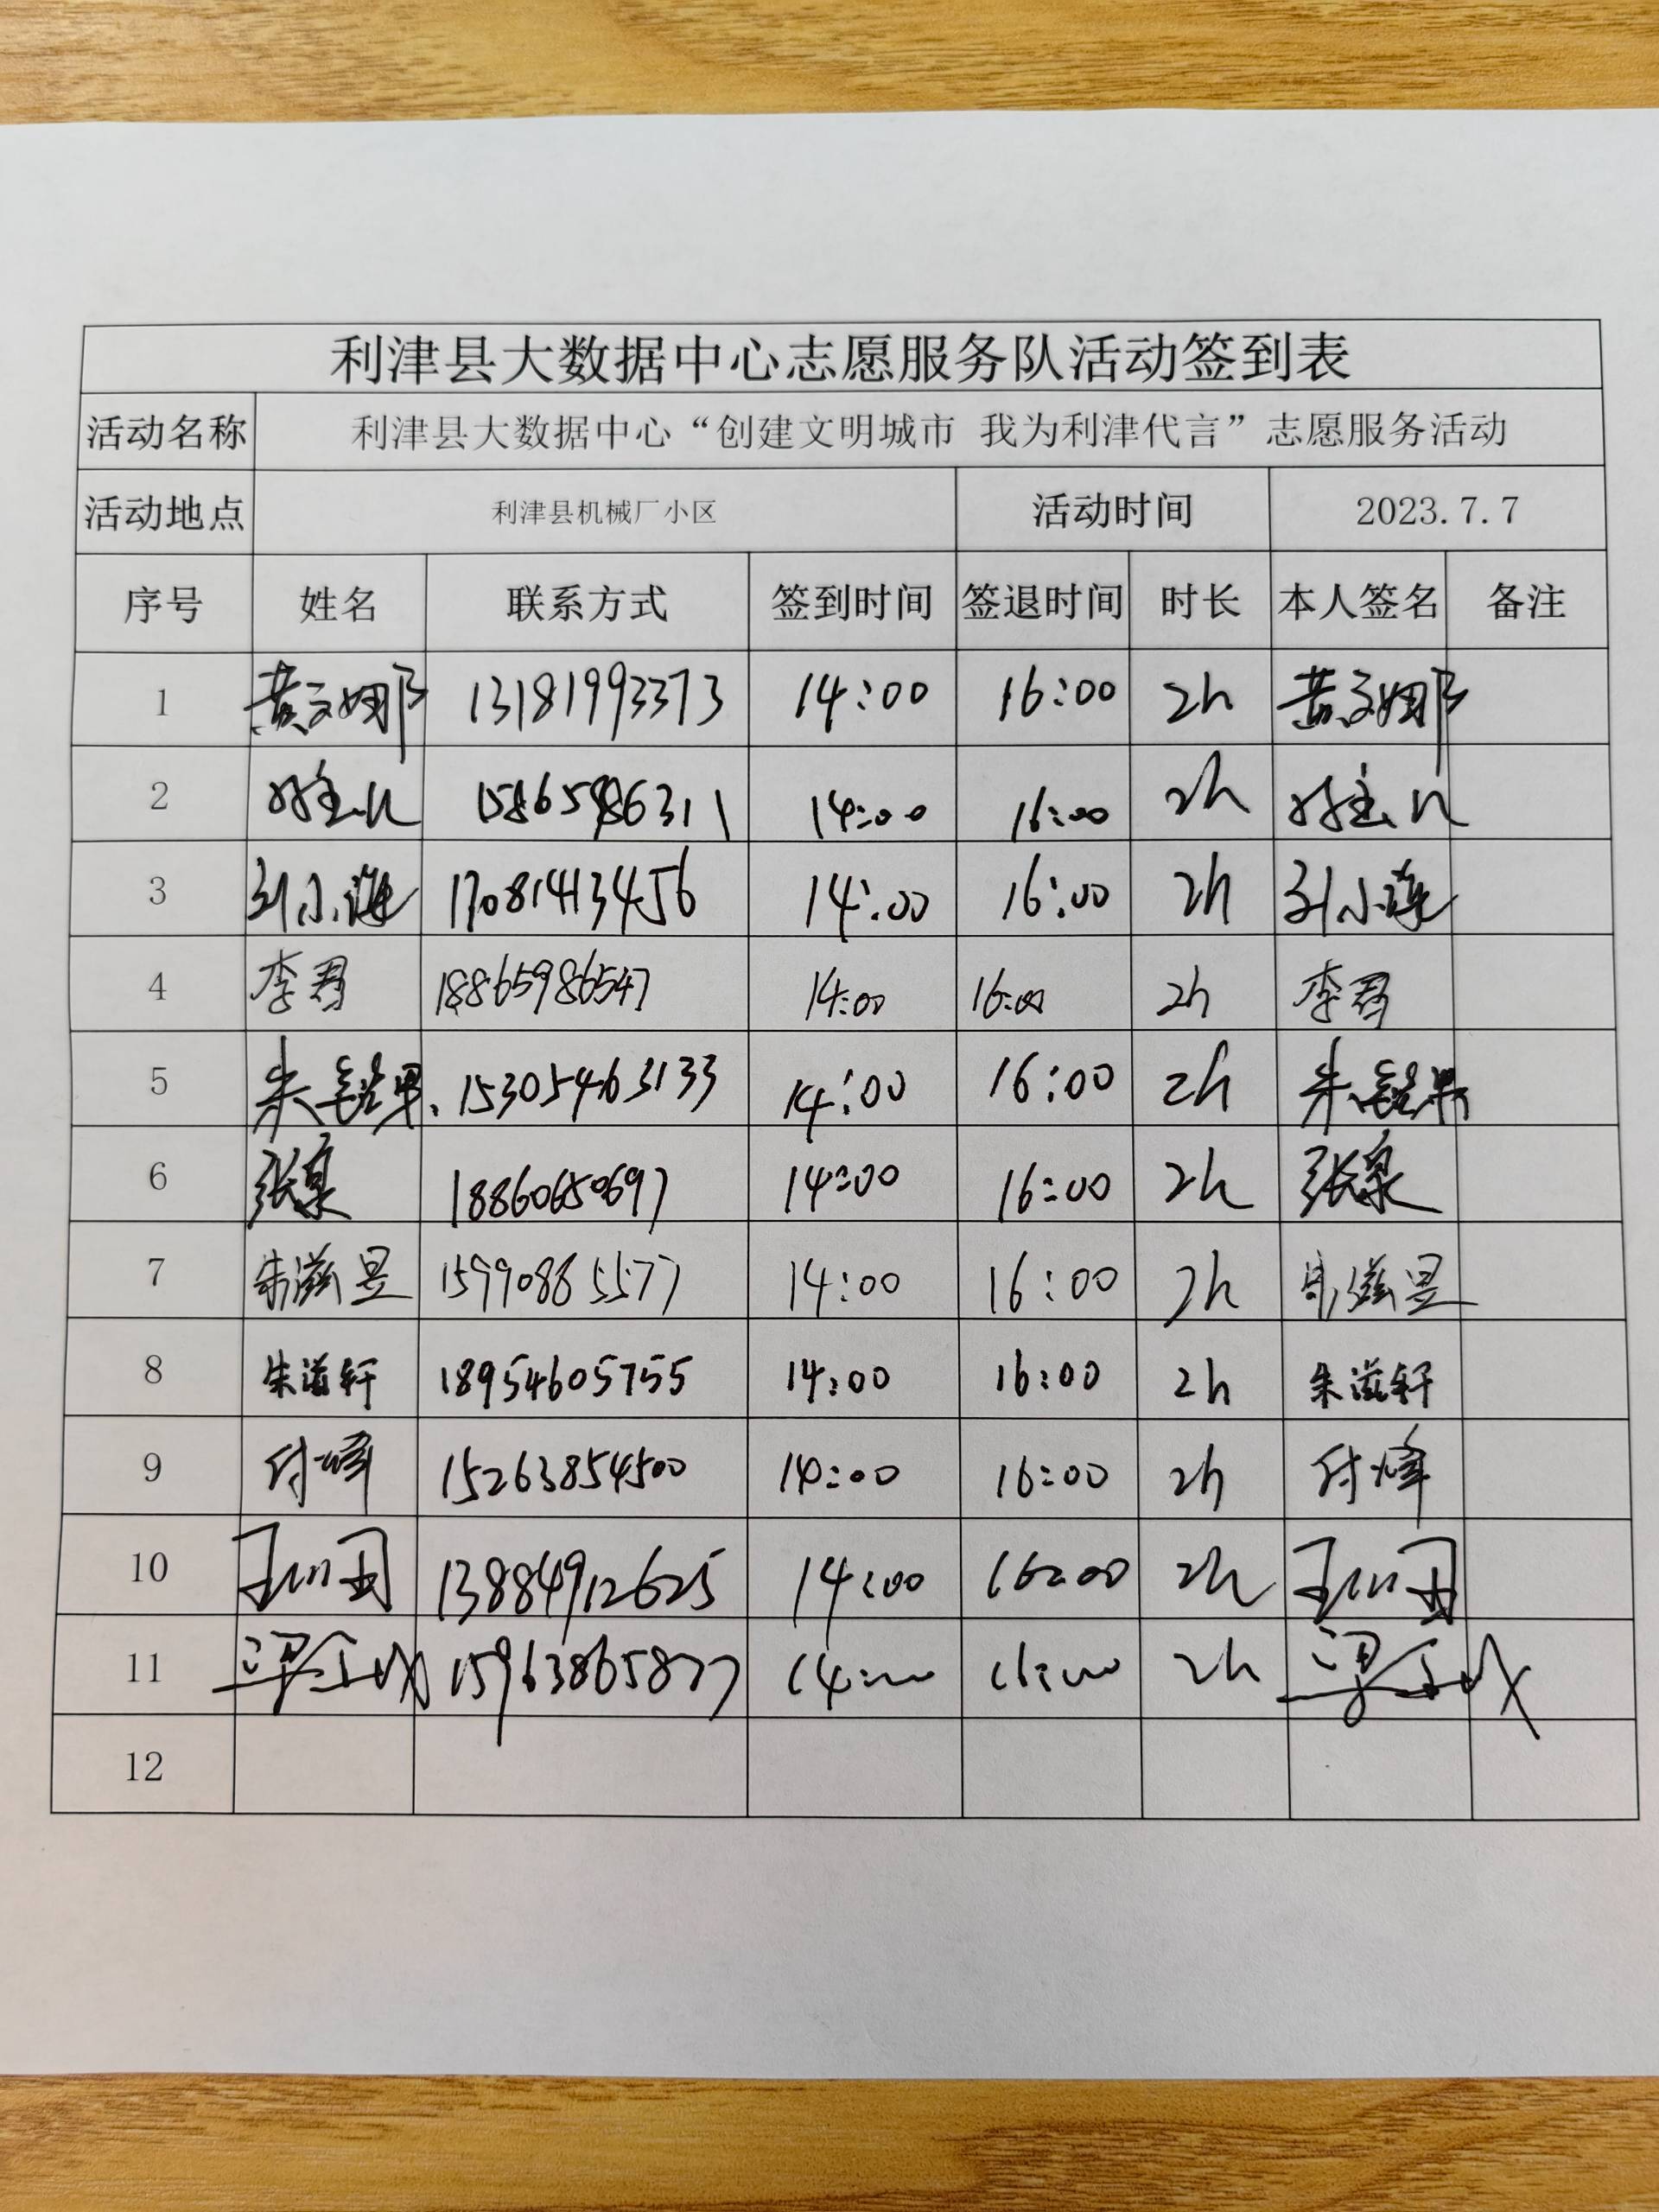 利津县大数据中心志愿服务队活动签到表
活动名称 利津县大数据中心“创建文明城市 我为利津代言”志愿服务活动
活动地点 利津县机械厂小区 活动时间 2023.7.7
序号 姓名 联系方式 签到时间 签退时间 时长 本人签名 备注
1 13181993373 14:00 16:00 2h
2 14:00 16:00 2h
3 刘小莲 17081413456 14:00 16:00 2h 刘小莲
4 李君 18865986547 14:00 16:00 2h 李君
5 朱 15305463133 14:00 16:00 2h 朱
6 张泉 18860650697 14:00 16:00 2h 张泉
7 朱滋昱 15990885577 14:00 16:00 2h 朱滋昱
8 朱滋轩 18954605755 14:00 16:00 2h 朱滋轩
9 付峰 15263854500 14:00 16:00 2h 付峰
10 13884912625 14:00 16:00 2h
11 梁 15963865877 14:00 16:00 2h 梁
12